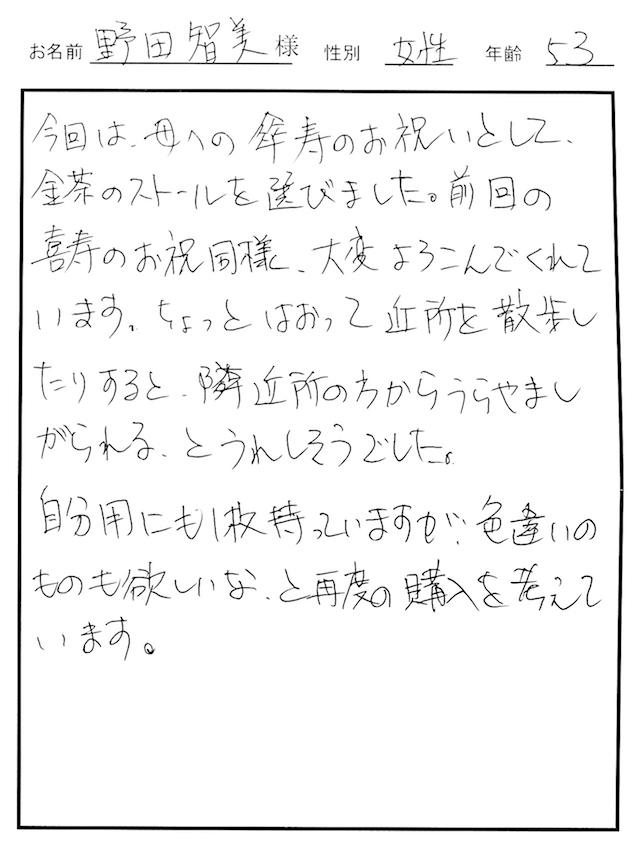 お名前 野田智美 様 性別 女性 年齢 53
今回は、母への傘寿のお祝いとして、
金茶のストールを選びました。前回の
喜寿のお祝同様、大変よろこんでくれて
います。ちょっとはおって近所を散歩し
たりすると、隣近所の方からうらやまし
がられる、とうれしそうでした。
自分用にも1枚持っていますが、色違いの
ものも欲しいな、と再度の購入を考えて
います。